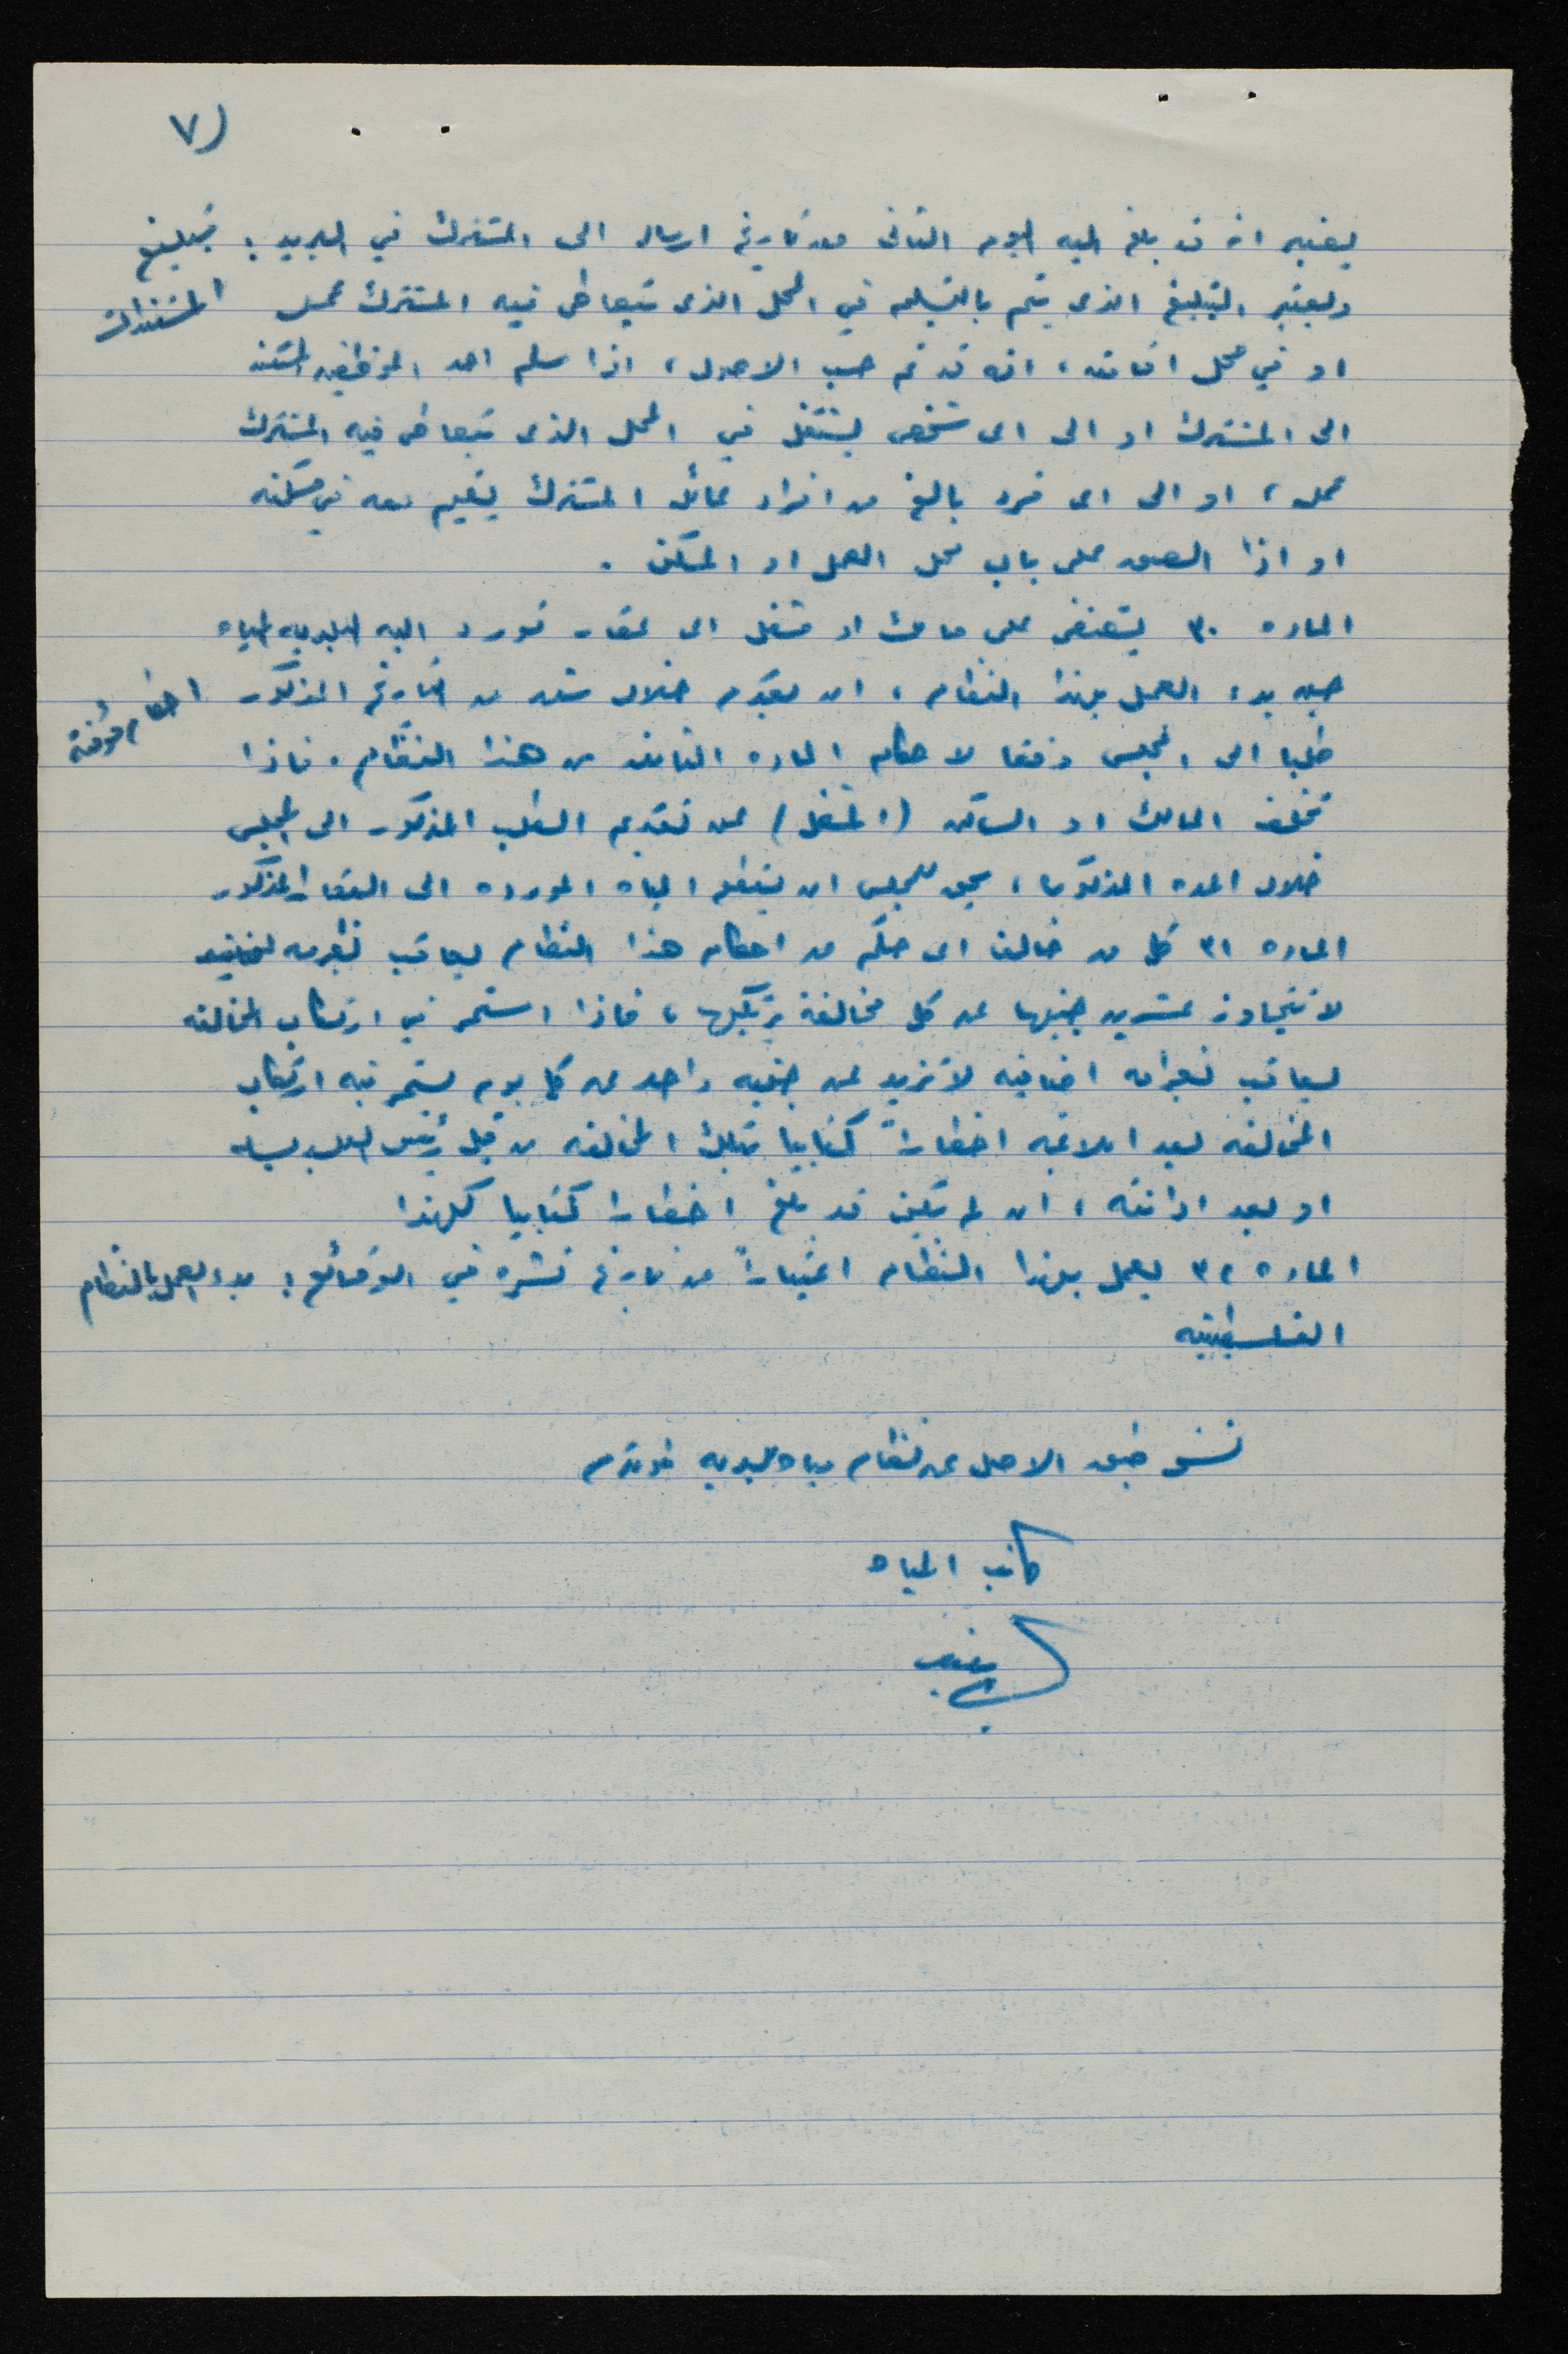 ٧)
يعتبر انه قد بلغ اليه اليوم الثاني من تاريخ ارساله الى المشترك في البريد : تبليغ
المستندات
ويعتبر التبليغ الذى يتم بالتسليم في المحل الذى يتعاطى فيه المشترك عمله
او في محل اقامته ، انه قد تم حسب الاصول ، اذا سلم احد الموظفين المستند
الى المشترك او الى اى شخص يشتغل في المحل الذى يتعاطى فيه المشترك
عمله ، او الى اى فرد بالغ من افراد عائلة المشترك يقيم معه في مسكنه
او اذا الصق على باب محل العمل او المسكن .
الماده ٣٠ يقتضى على مالك او مشغل اى عقار تورد اليه البلديه المياه
حين بدء العمل بهذا النظام ، ان يقدم خلال سنه من التاريخ المذكور
احكام مؤقتة
طلبا الى المجلس وفقا لاحكام الماده الثانيه من هذا النظام . فاذا
تخلف المالك او الساكن (المشغل) عن تقديم الطلب المذكور الى المجلس
خلال المده المذكوره ، يحق للمجلس ان يقطع المياه الموروده الى العقار المذكور
الماده ٣١ كل من خالف اى حكم من احكام هذا النظام يعاقب بغرامه
لا تتجاوز عشرين جنيها عن كل مخالفة يرتكبها ، فاذا استمر في ارتكاب المخالفه
يعاقب بغرامه اضافيه لا تزيد عن جنيه واحد عن كل يوم يستمر فيه ارتكاب
المخالفه بعد ابلاغه اخطاراً كتابيا بتلك المخالفه من قبل رئيس البلديه
او بعد ادانته ، ان لم يكن قد بلغ اخطارا كتابيا كهذا
الماده ٣٢ يعمل بهذا النظام اعتباراً من تاريخ نشره في الوقائع : بدء العمل بالنظام
الفلسطينيه
نسخه طبق الاصل عن نظام مياه بلديه طولكرم
كاتب المياه